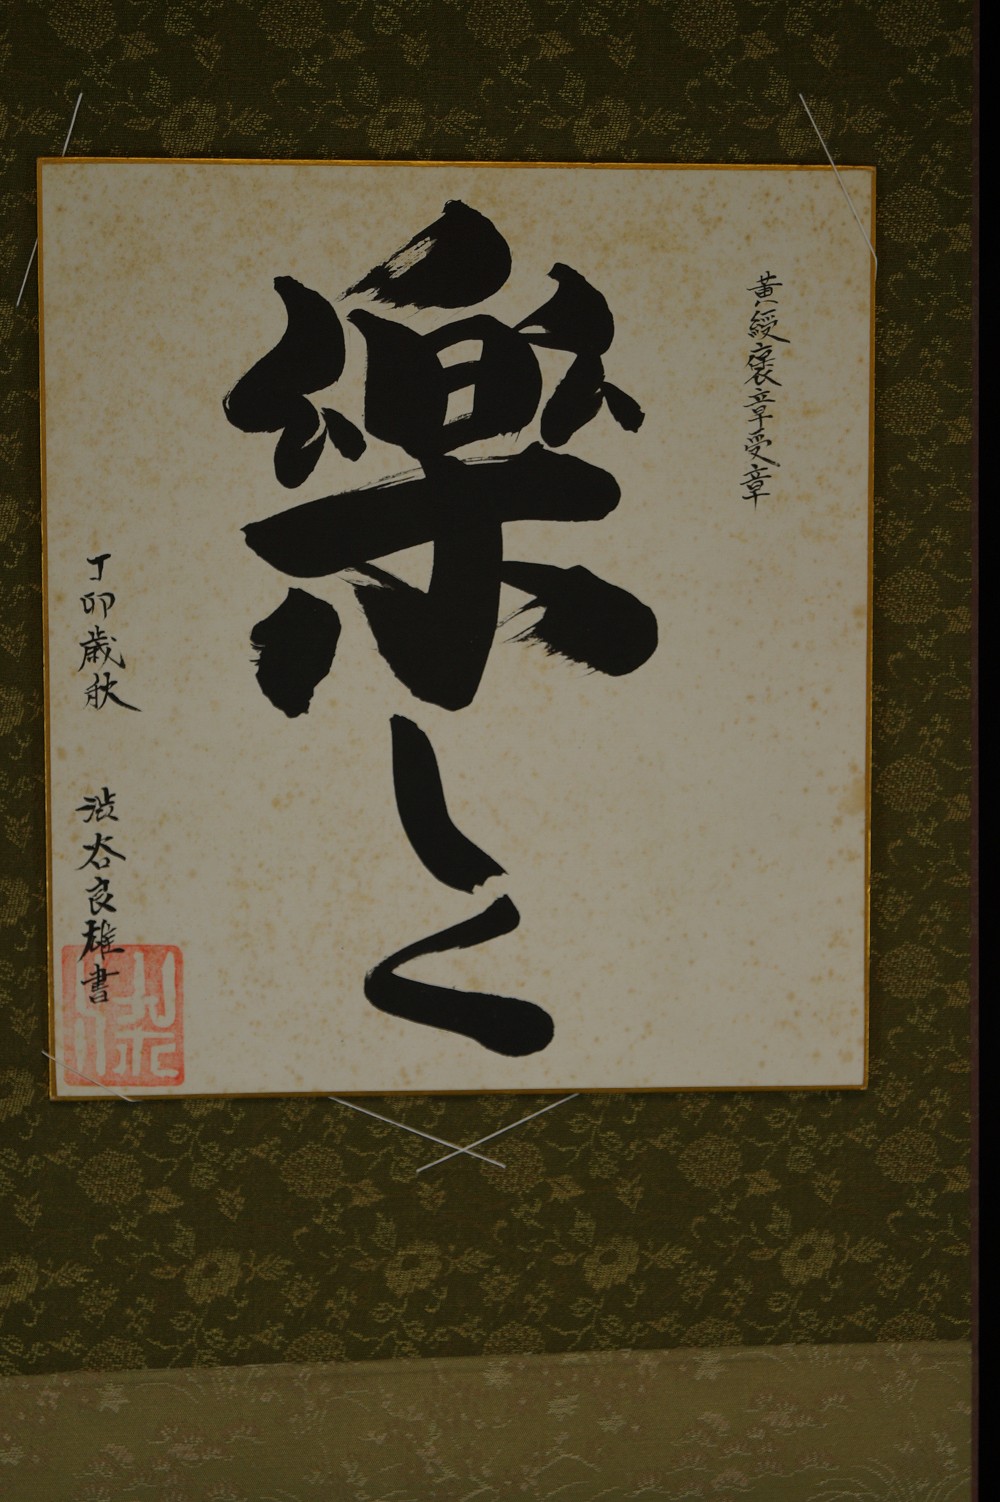 黄綬褒章受章
樂しく
丁卯歳秋 渋谷良雄書